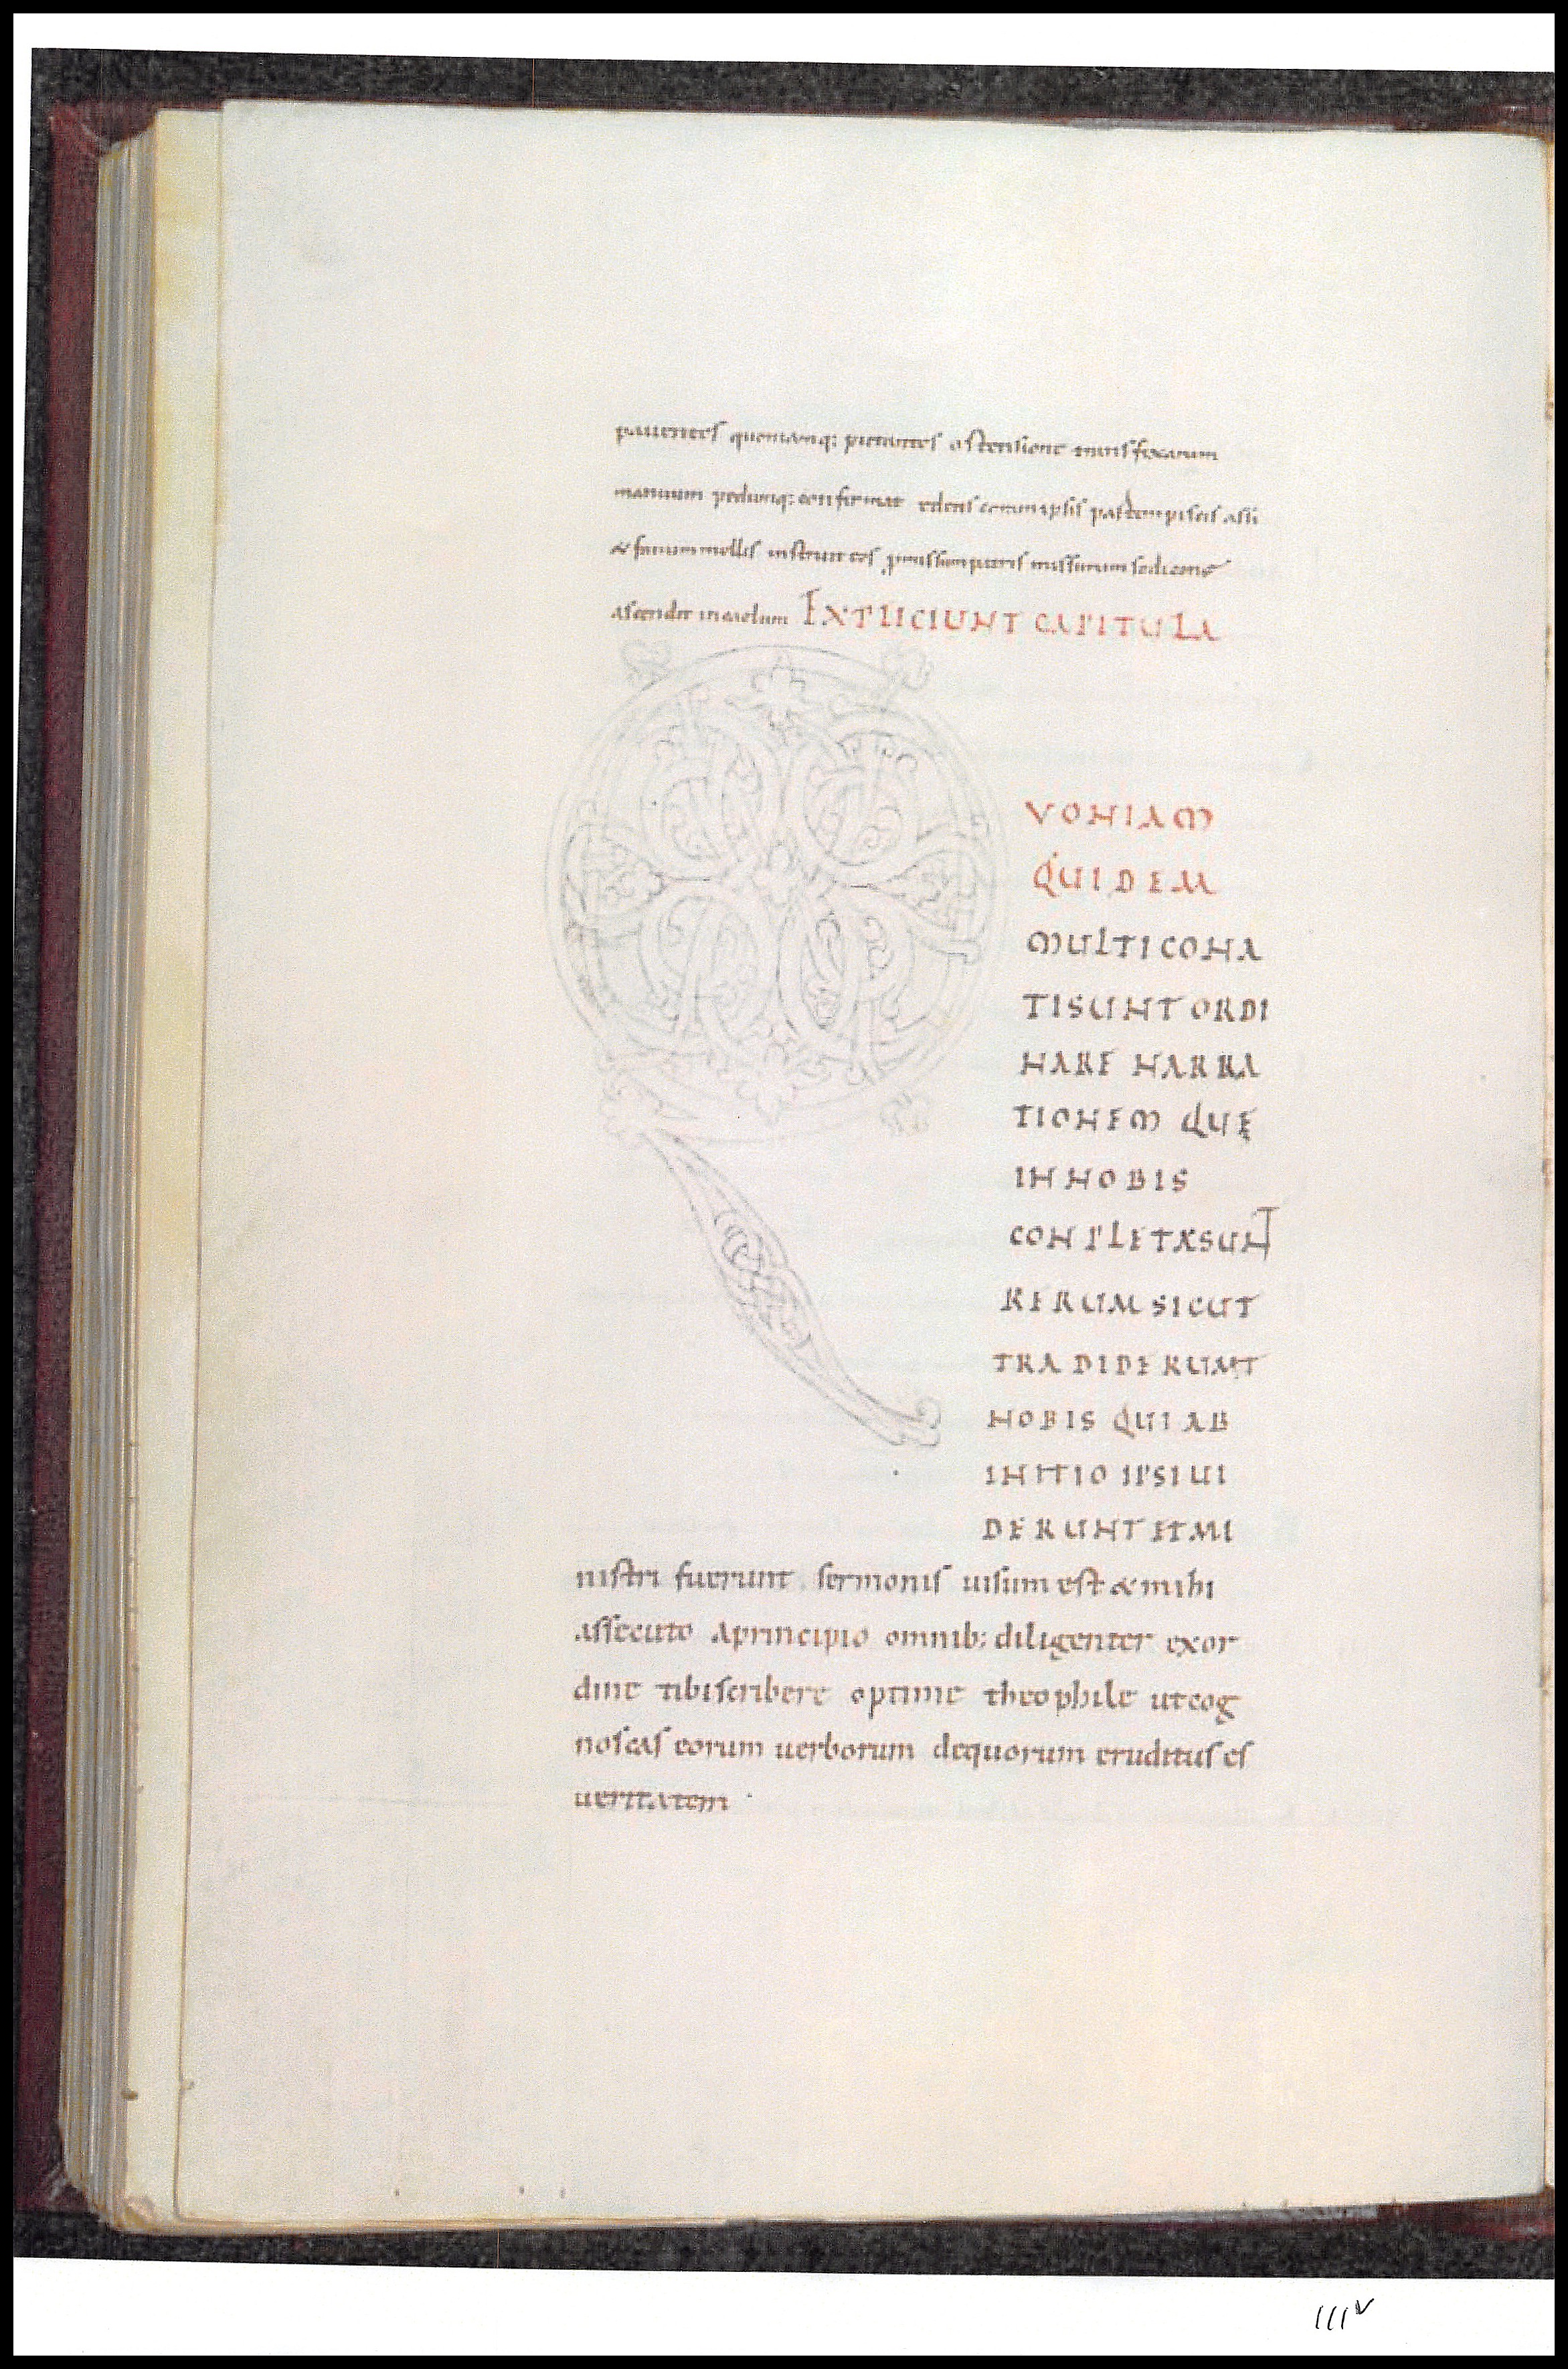 pauentes quoniamq; putantes ostensione transfixarum
manuum pedumq; confirmat edens coram ipsis partem piscis assi
& fauum mellis instruit eos promissum patris missurum se dicens
ascendit in caelum EXPLICIUNT CAPITULA
VONIAM
QUIDEM
MULTI CONA
TI SUNT ORDI
NARE NARRA
TIONEM QUĘ
IN NOBIS
CONPLETAE SUNT
RERUM SICUT
TRADIDERUNT
NOBIS QUI AB
INITIO IPSI UI
DERUNT ET MI
nistri fuerunt sermonis uisum est & mihi
assecuto a principio omnib; diligenter ex or
dine tibi scribere optime theophile ut cog
noscas eorum uerborum de quorum eruditus es
ueritatem ·
111v